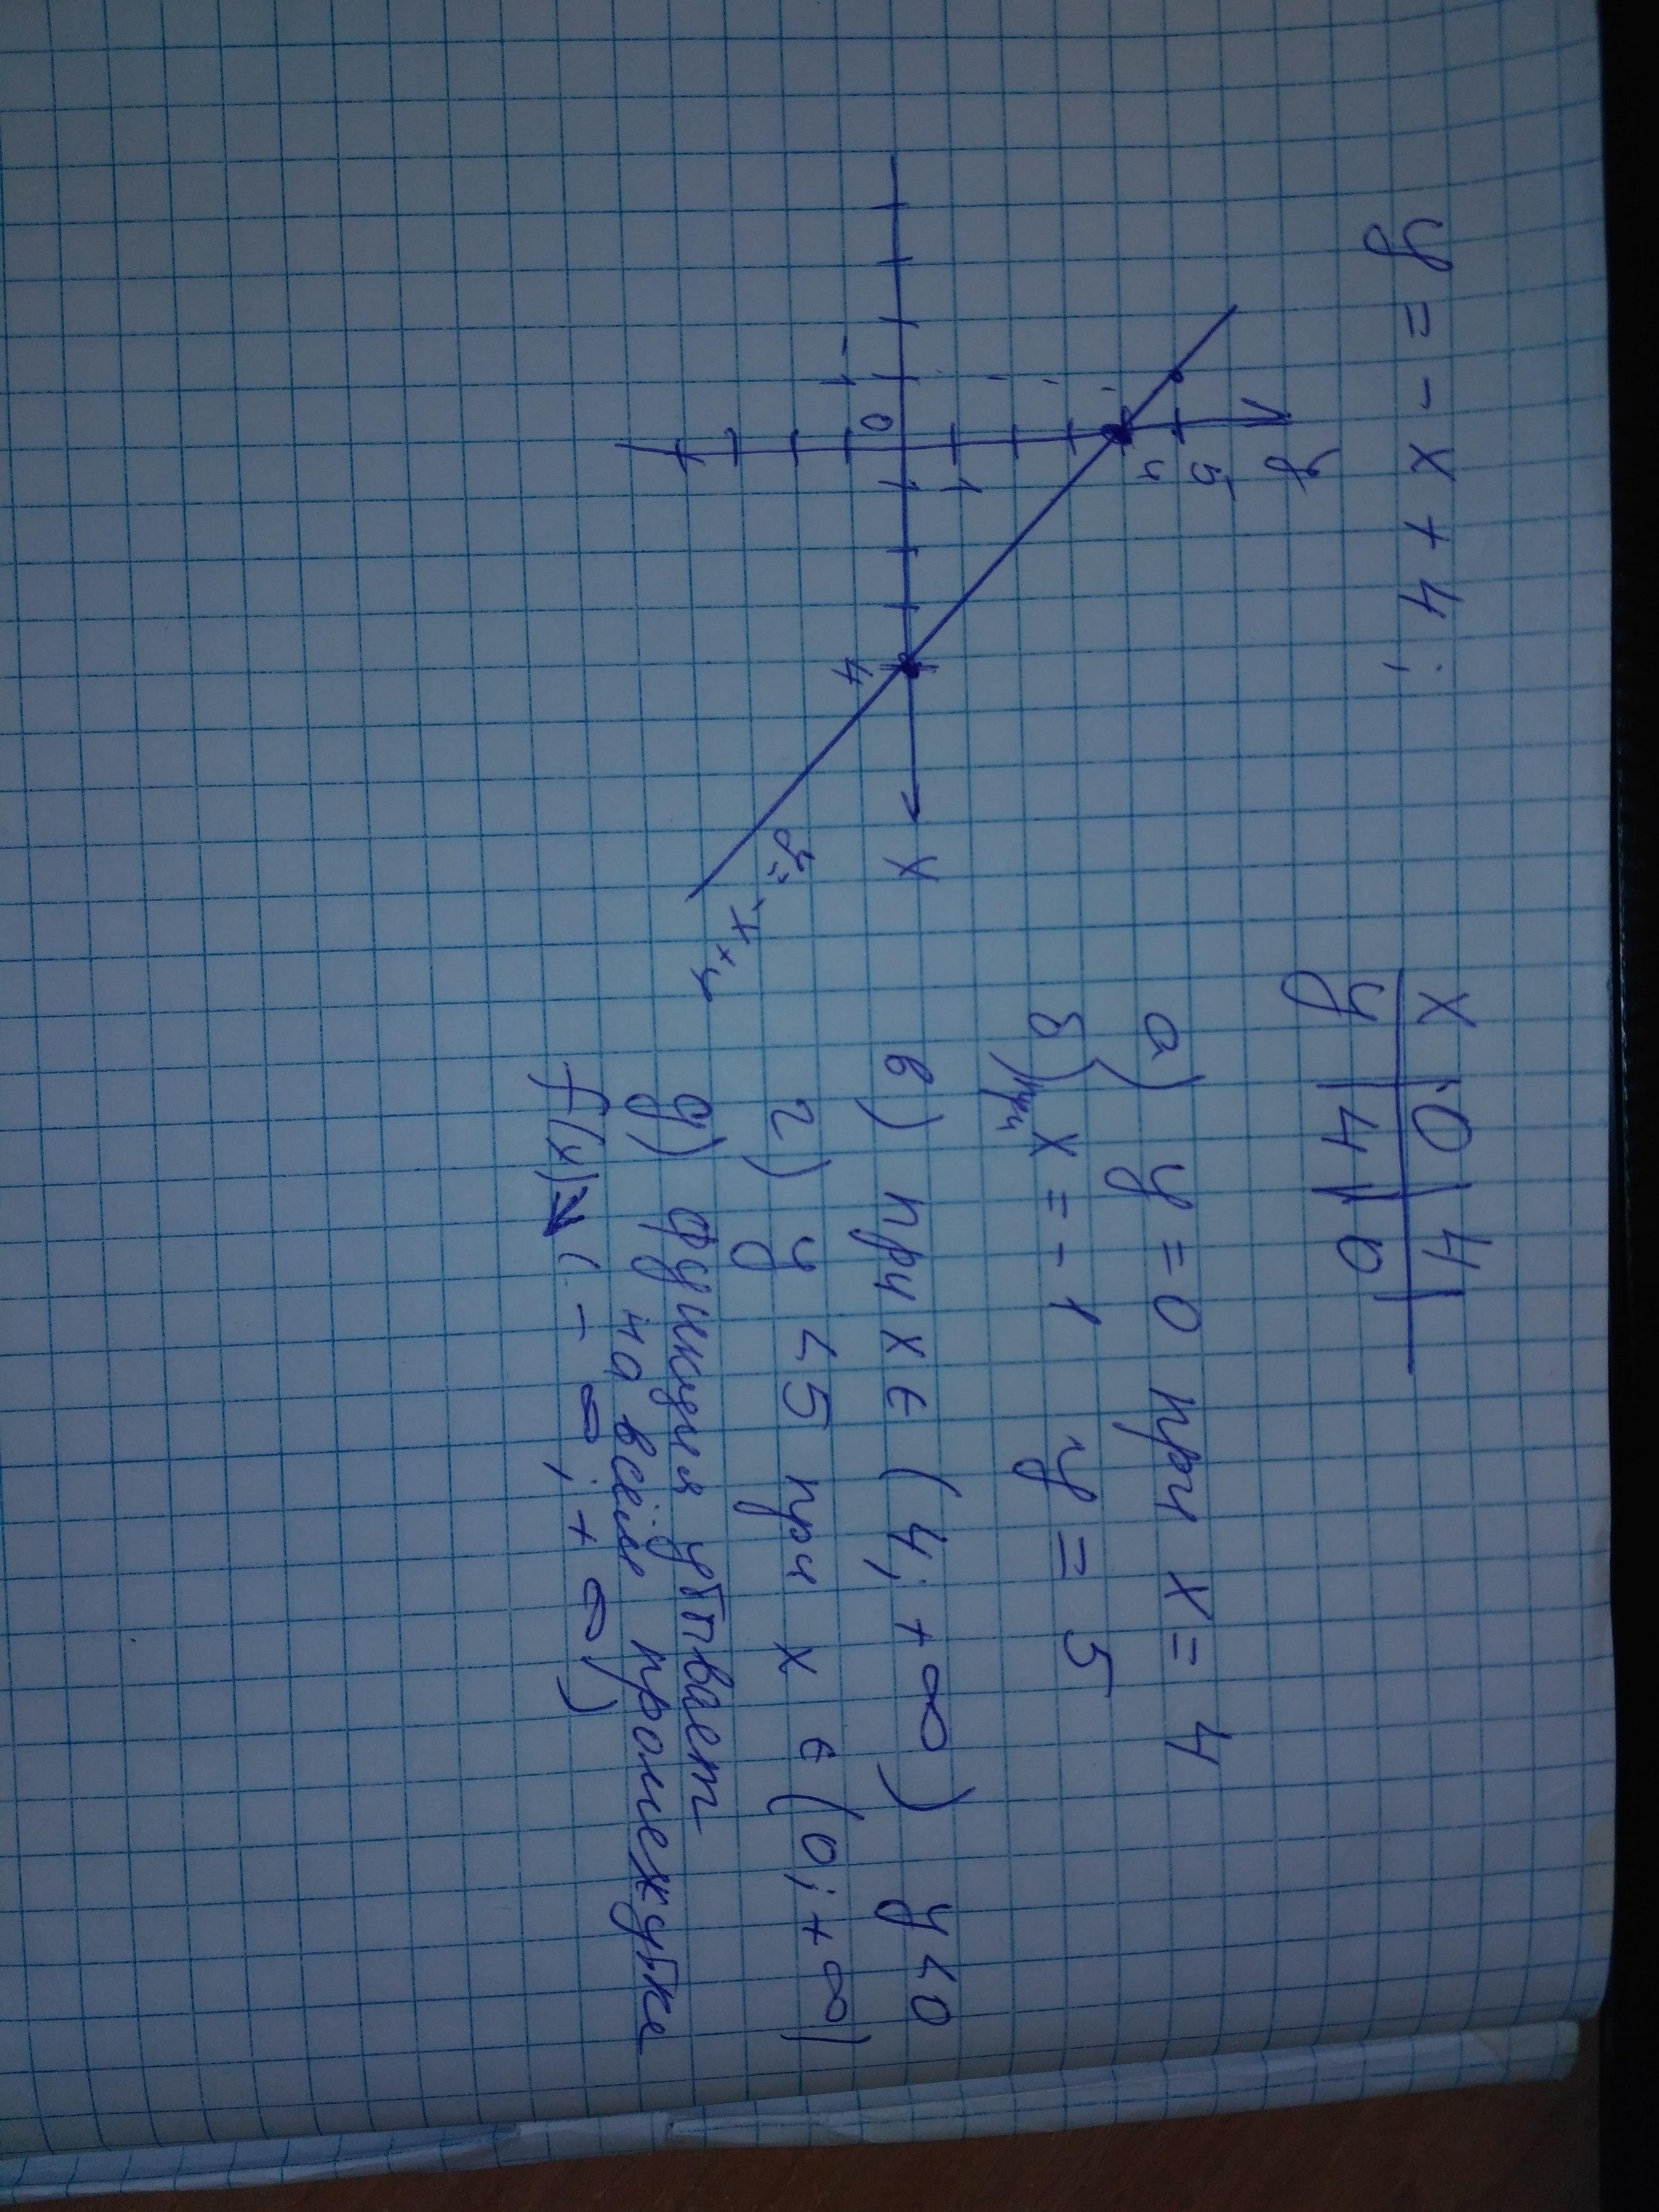 y = - x + 4 ;
x | 0 | 4 |
y | 4 | 0 |
y
5
4
1
-1
0
1
4
x
y = -x+4
а) y = 0 при x = 4
б) при x = - 1 y = 5
в) при x ∈ (4; + ∞) y < 0
г) y < 5 при x ∈ (0; + ∞)
д) функция убывает
на всём промежутке
f(x) ↘ ( - ∞; + ∞)